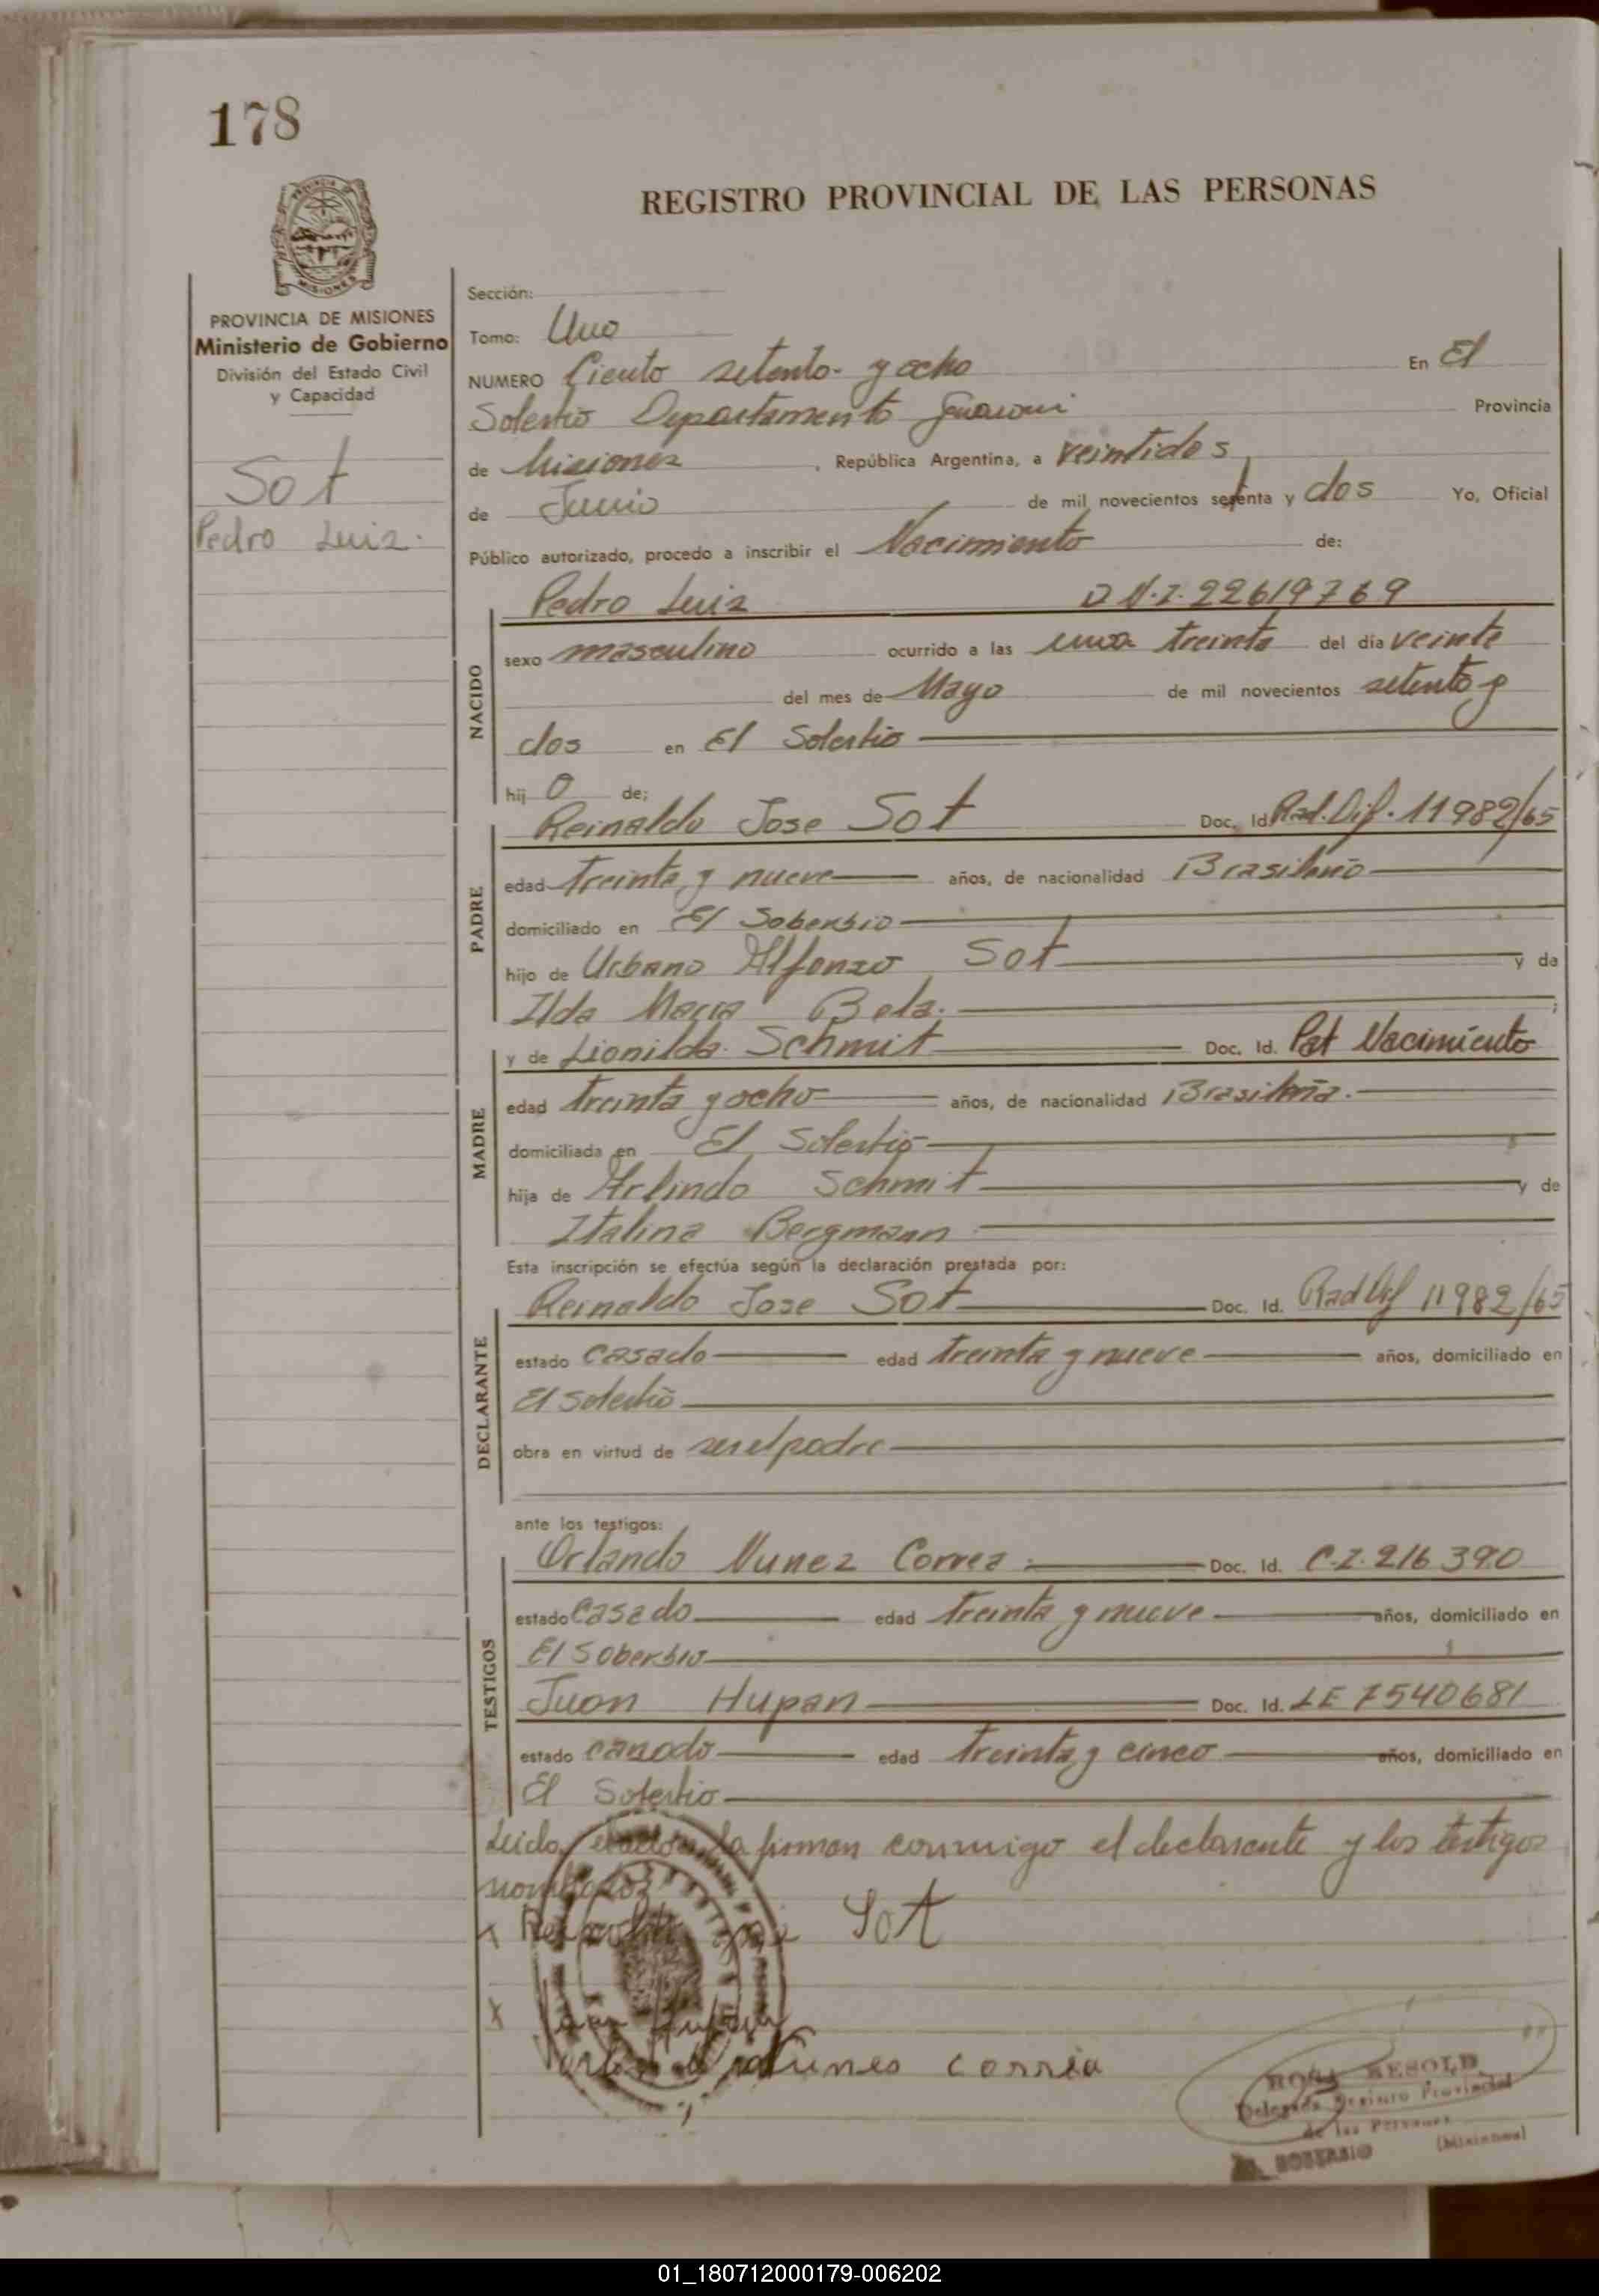 178
REGISTRO PROVINCIAL DE LAS PERSONAS
MISIONES
PROVINCIA DE MISIONES
Ministerio de Gobierno
División del Estado Civil
y Capacidad
Sot
Pedro Luis.
Sección:
Tomo: Uno
NUMERO Ciento setenta y ocho En El
Soberbio Departamento Guarani Provincia
de Misiones, República Argentina, a veintidos
de Junio de mil novecientos setenta y dos Yo, Oficial
Público autorizado, procedo a inscribir el Nacimiento de:
NACIDO
Pedro Luis D.N.I. 22619769
sexo masculino ocurrido a las una treinta del día veinte
del mes de Mayo de mil novecientos setenta y
dos en El Soberbio
hij o de:
PADRE
Reinaldo Jose Sot Doc. Id. Rad. Dif. 11982/65
edad treinta y nueve años, de nacionalidad Brasileño
domiciliado en El Soberbio
hijo de Urbano Alfonso Sot y de
Ilda Maria Bela.;
MADRE
y de Lionilda Schmit Doc. Id. Pat Nacimiento
edad treinta y ocho años, de nacionalidad Brasileña.
domiciliada en El Soberbio
hija de Arlindo Schmit y de
Italina Bergmann
Esta inscripción se efectúa según la declaración prestada por:
DECLARANTE
Reinaldo Jose Sot Doc. Id. Rad Dif 11982/65
estado casado edad treinta y nueve años, domiciliado en
El Soberbio
obra en virtud de ser el padre
ante los testigos:
TESTIGOS
Orlando Nunez Correa Doc. Id. C.I. 216390
estado casado edad treinta y nueve años, domiciliado en
El Soberbio
Juan Hupan Doc. Id. LE 7540681
estado casado edad treinta y cinco años, domiciliado en
El Soberbio
Leida el acta la firman conmigo el declarante y los testigos
nombrados
x Reinaldo Jose Sot
x
Nunes Corrêa
ROSA RESOLD
Delegada Registro Provincial
de las Personas
EL SOBERBIO (Misiones)
01_180712000179-006202